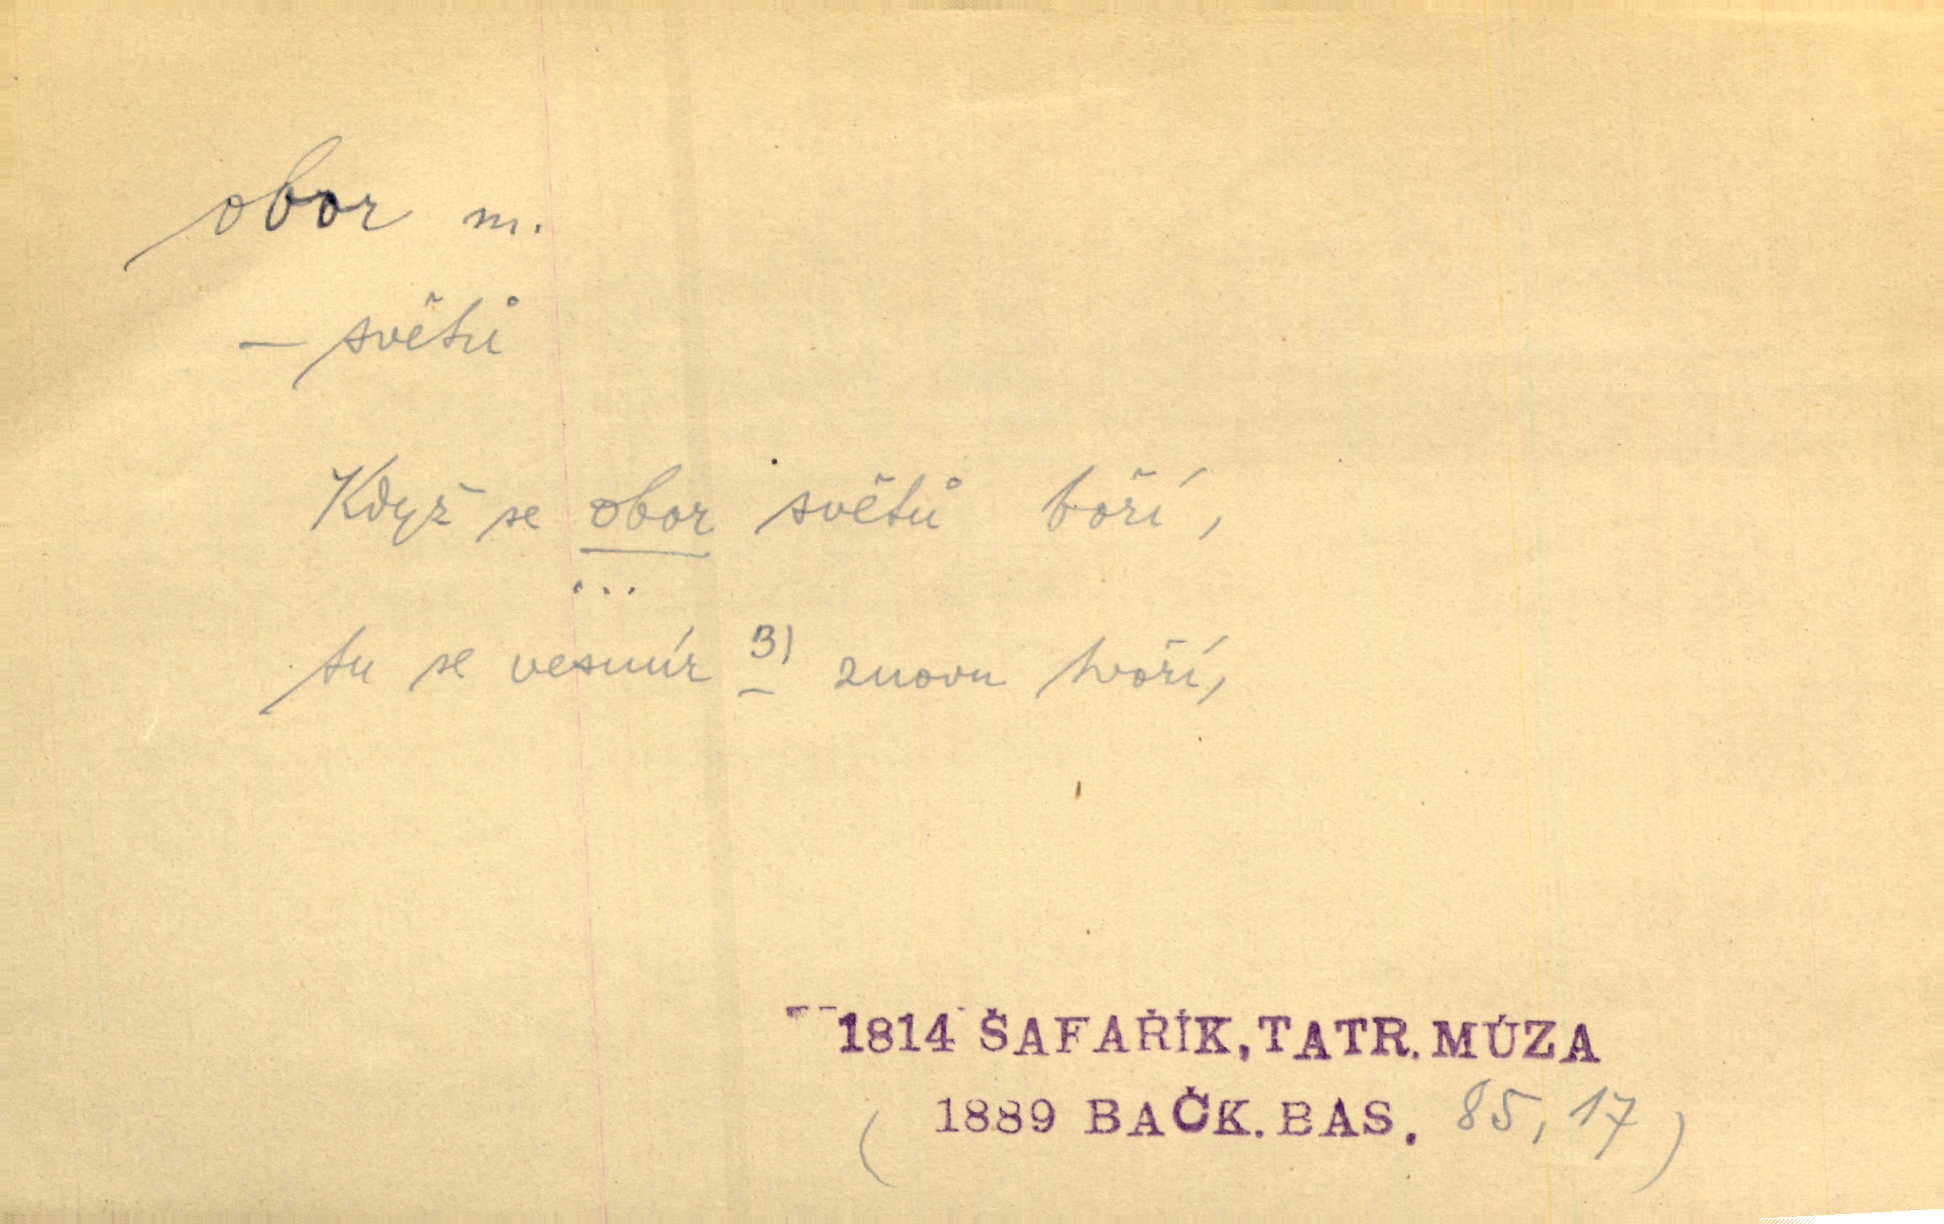 obor m.
– světů
Když se obor světů boří,
...
tu se vesmír 3) znovu tvoří,
1814 ŠAFAŘÍK, TATR. MÚZA
( 1889 BAČK. BAS. 85, 17 )